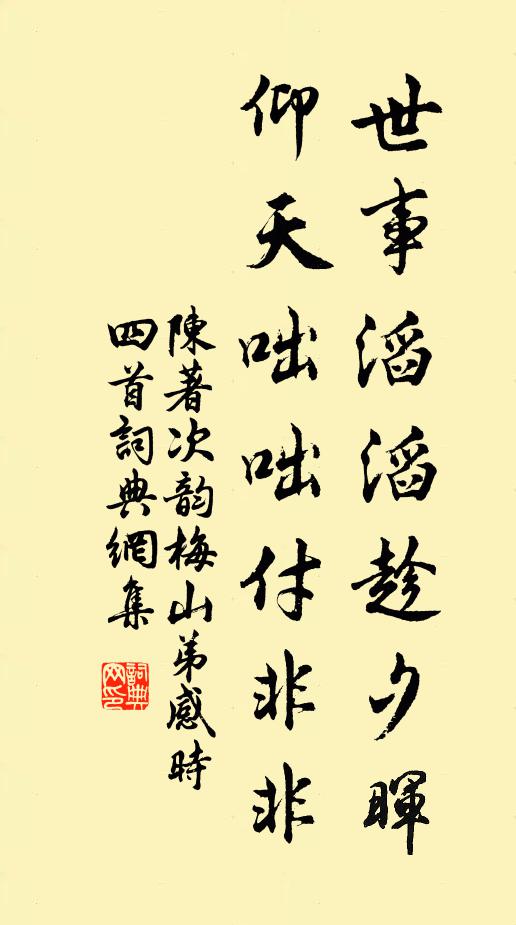 世事滔滔趁夕暉
仰天咄咄付非非
陳著次韵梅山弟感時
四首詞典網集
詞典網印